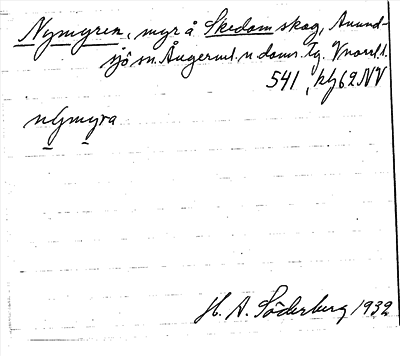 Nymyren, myr å Skedom skog, Anund-
sjö sn. Ångerml. n doms. Tg. V norrl. l.
541, kbl 62 NV
nȳmȳra
H. A. Söderberg 1932